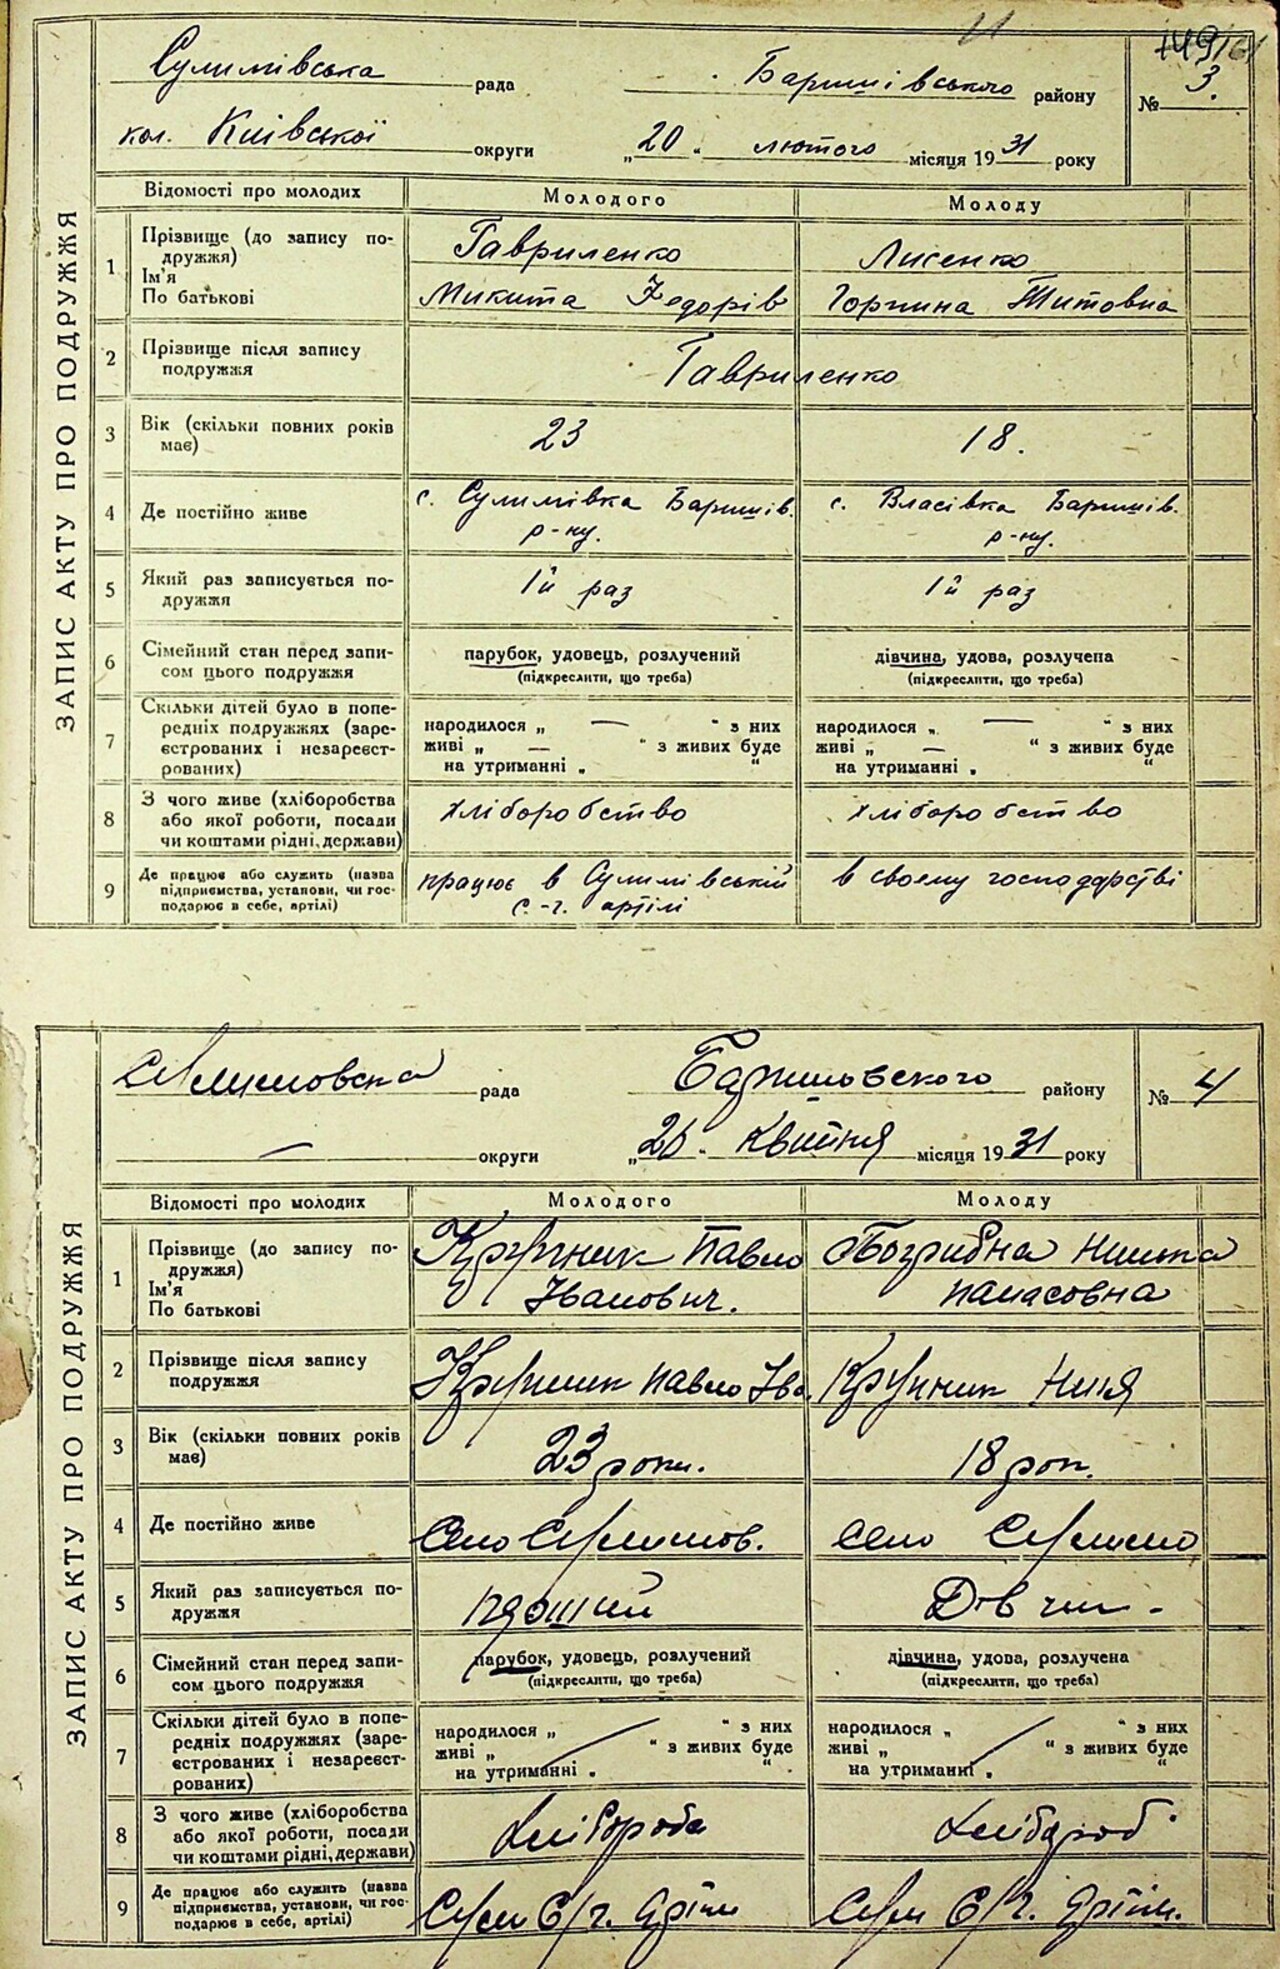 149/61
Сулимівська рада Баришівського району № 3.
кол. Київської округи „20" лютого місяця 1931 року
ЗАПИС АКТУ ПРО ПОДРУЖЖЯ
Відомості про молодих Молодого Молоду
1 Прізвище (до запису по-
дружжя)
Ім'я
По батькові
Гавриленко Лисенко
Микита Федорів Горпина Титовна
2 Прізвище після запису
подружжя
Гавриленко
3 Вік (скільки повних років
має)
23 18.
4 Де постійно живе
с. Сулимівка Баришів. с. Власівка Баришів.
р-ну. р-ну.
5 Який раз записується по-
дружжя
1й раз 1й раз
6 Сімейний стан перед запи-
сом цього подружжя
парубок, удовець, розлучений дівчина, удова, розлучена
(підкреслити, що треба) (підкреслити, що треба)
7 Скільки дітей було в попе-
редніх подружжях (заре-
єстрованих і незареєст-
рованих)
народилося „ — " з них народилося „ — " з них
живі „ — " з живих буде живі „ — " з живих буде
на утриманні „ " на утриманні „ "
8 З чого живе (хліборобства
або якої роботи, посади
чи коштами рідні, держави)
хліборобство хліборобство
9 Де працює або служить (назва
підприємства, установи, чи гос-
подарює в себе, артілі)
працює в Сулимівській в своєму господарстві
с.-г. артілі
Сулимовска рада Баришовского району № 4
— округи „20" квитня місяця 1931 року
ЗАПИС АКТУ ПРО ПОДРУЖЖЯ
Відомості про молодих Молодого Молоду
1 Прізвище (до запису по-
дружжя)
Ім'я
По батькові
Крупник Павло
Іванович. Панасовна
2 Прізвище після запису
подружжя
Крупник Павло Іва. Крупник Ниня
3 Вік (скільки повних років
має)
23 роки. 18 рок.
4 Де постійно живе
Село Сулимов. село Сулимо
5 Який раз записується по-
дружжя
Дівчин.
6 Сімейний стан перед запи-
сом цього подружжя
парубок, удовець, розлучений дівчина, удова, розлучена
(підкреслити, що треба) (підкреслити, що треба)
7 Скільки дітей було в попе-
редніх подружжях (заре-
єстрованих і незареєст-
рованих)
народилося „ " з них народилося „ " з них
живі „ " з живих буде живі „ " з живих буде
на утриманні „ " на утриманні „ "
8 З чого живе (хліборобства
або якої роботи, посади
чи коштами рідні, держави)
хлібороба хлібороб
9 Де працює або служить (назва
підприємства, установи, чи гос-
подарює в себе, артілі)
Сулим С/г. Артіли Сулим С/г. Артіли.